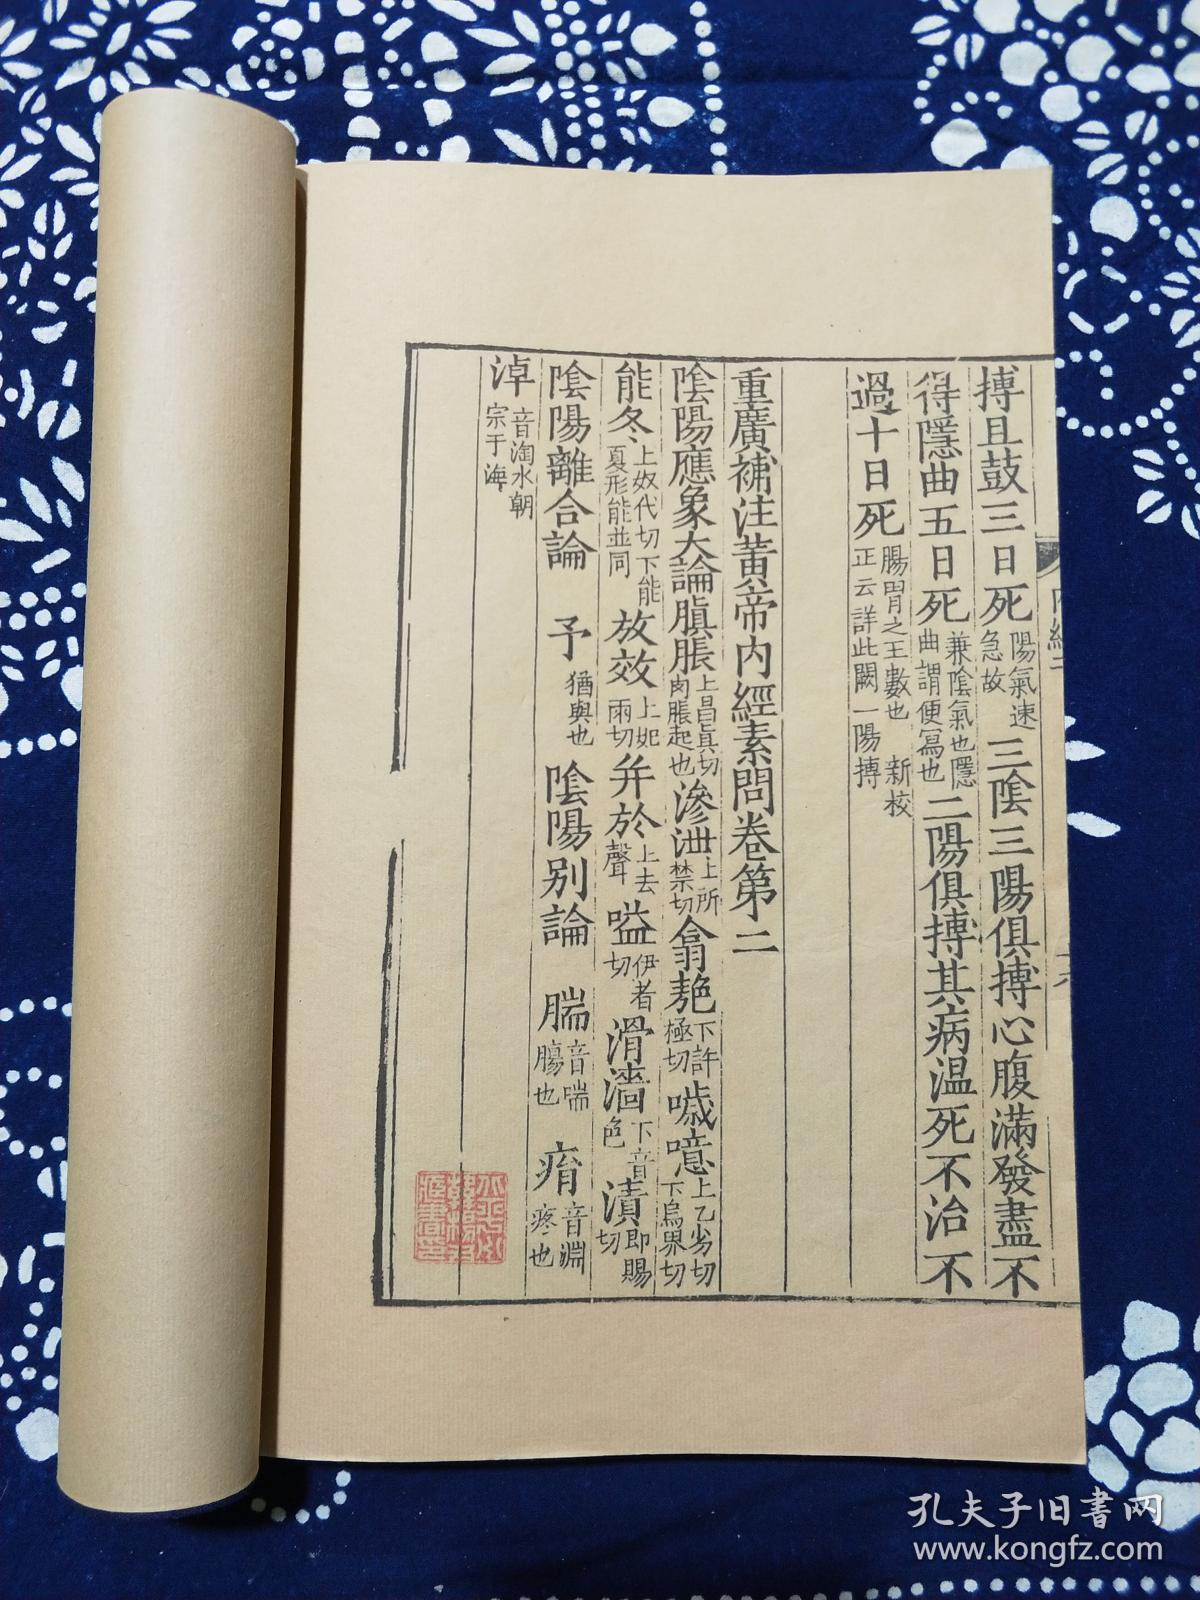 搏且鼓三日死陽氣速急故三陰三陽俱搏心腹滿發盡不
得隱曲五日死兼陰氣也隱曲謂便寫也二陽俱搏其病温死不治不
過十日死腸胃之王數也 新校正云詳此闕一陽搏
重廣補注黃帝内經素問卷第二
陰陽應象大論䐜脹上昌真切肉脹起也滲泄上所禁切翕赩下許極切噦噫上乙劣切下烏界切
能冬上奴代切下能夏形能並同放效上妃兩切并於上去聲嗌伊者切滑濇下音色漬即賜切
陰陽離合論 予猶與也 陰陽别論 腨音喘腸也 痟音淵疼也
淖音淘水朝宗于海
孔夫子旧书网
www.kongfz.com